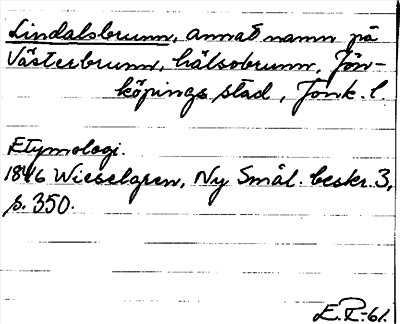 Lindalsbrunn, annat namn på
Västerbrunn, hälsobrunn, Jön-
köpings stad, Jönk. l.
Etymologi.
1846 Wieselgren, Ny Smål. beskr. 3,
s. 350.
E.P.-61.